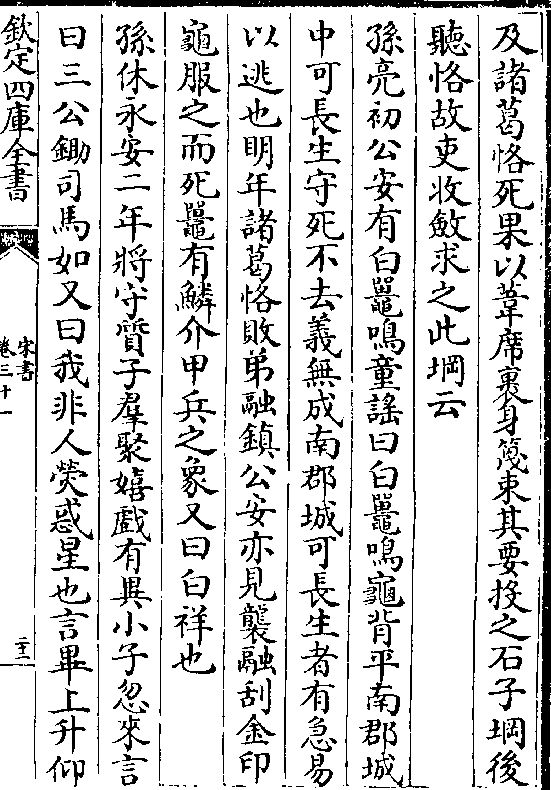 及諸葛恪死果以葦席裹身篾束其要投之石子堈後
聽恪故吏收斂求之此堈云
孫亮初公安有白鼉鳴童謡曰白鼉鳴龜背平南郡城
中可長生守死不去義無成南郡城可長生者有急易
以逃也明年諸葛恪敗弟融鎮公安亦見襲融刮金印
龜服之而死鼉有鱗介甲兵之象又曰白祥也
孫休永安二年將守質子羣聚嬉戲有異小子忽來言
曰三公鋤司馬如又曰我非人熒惑星也言畢上升仰
欽定四庫全書
宋書
卷三十一
二十二